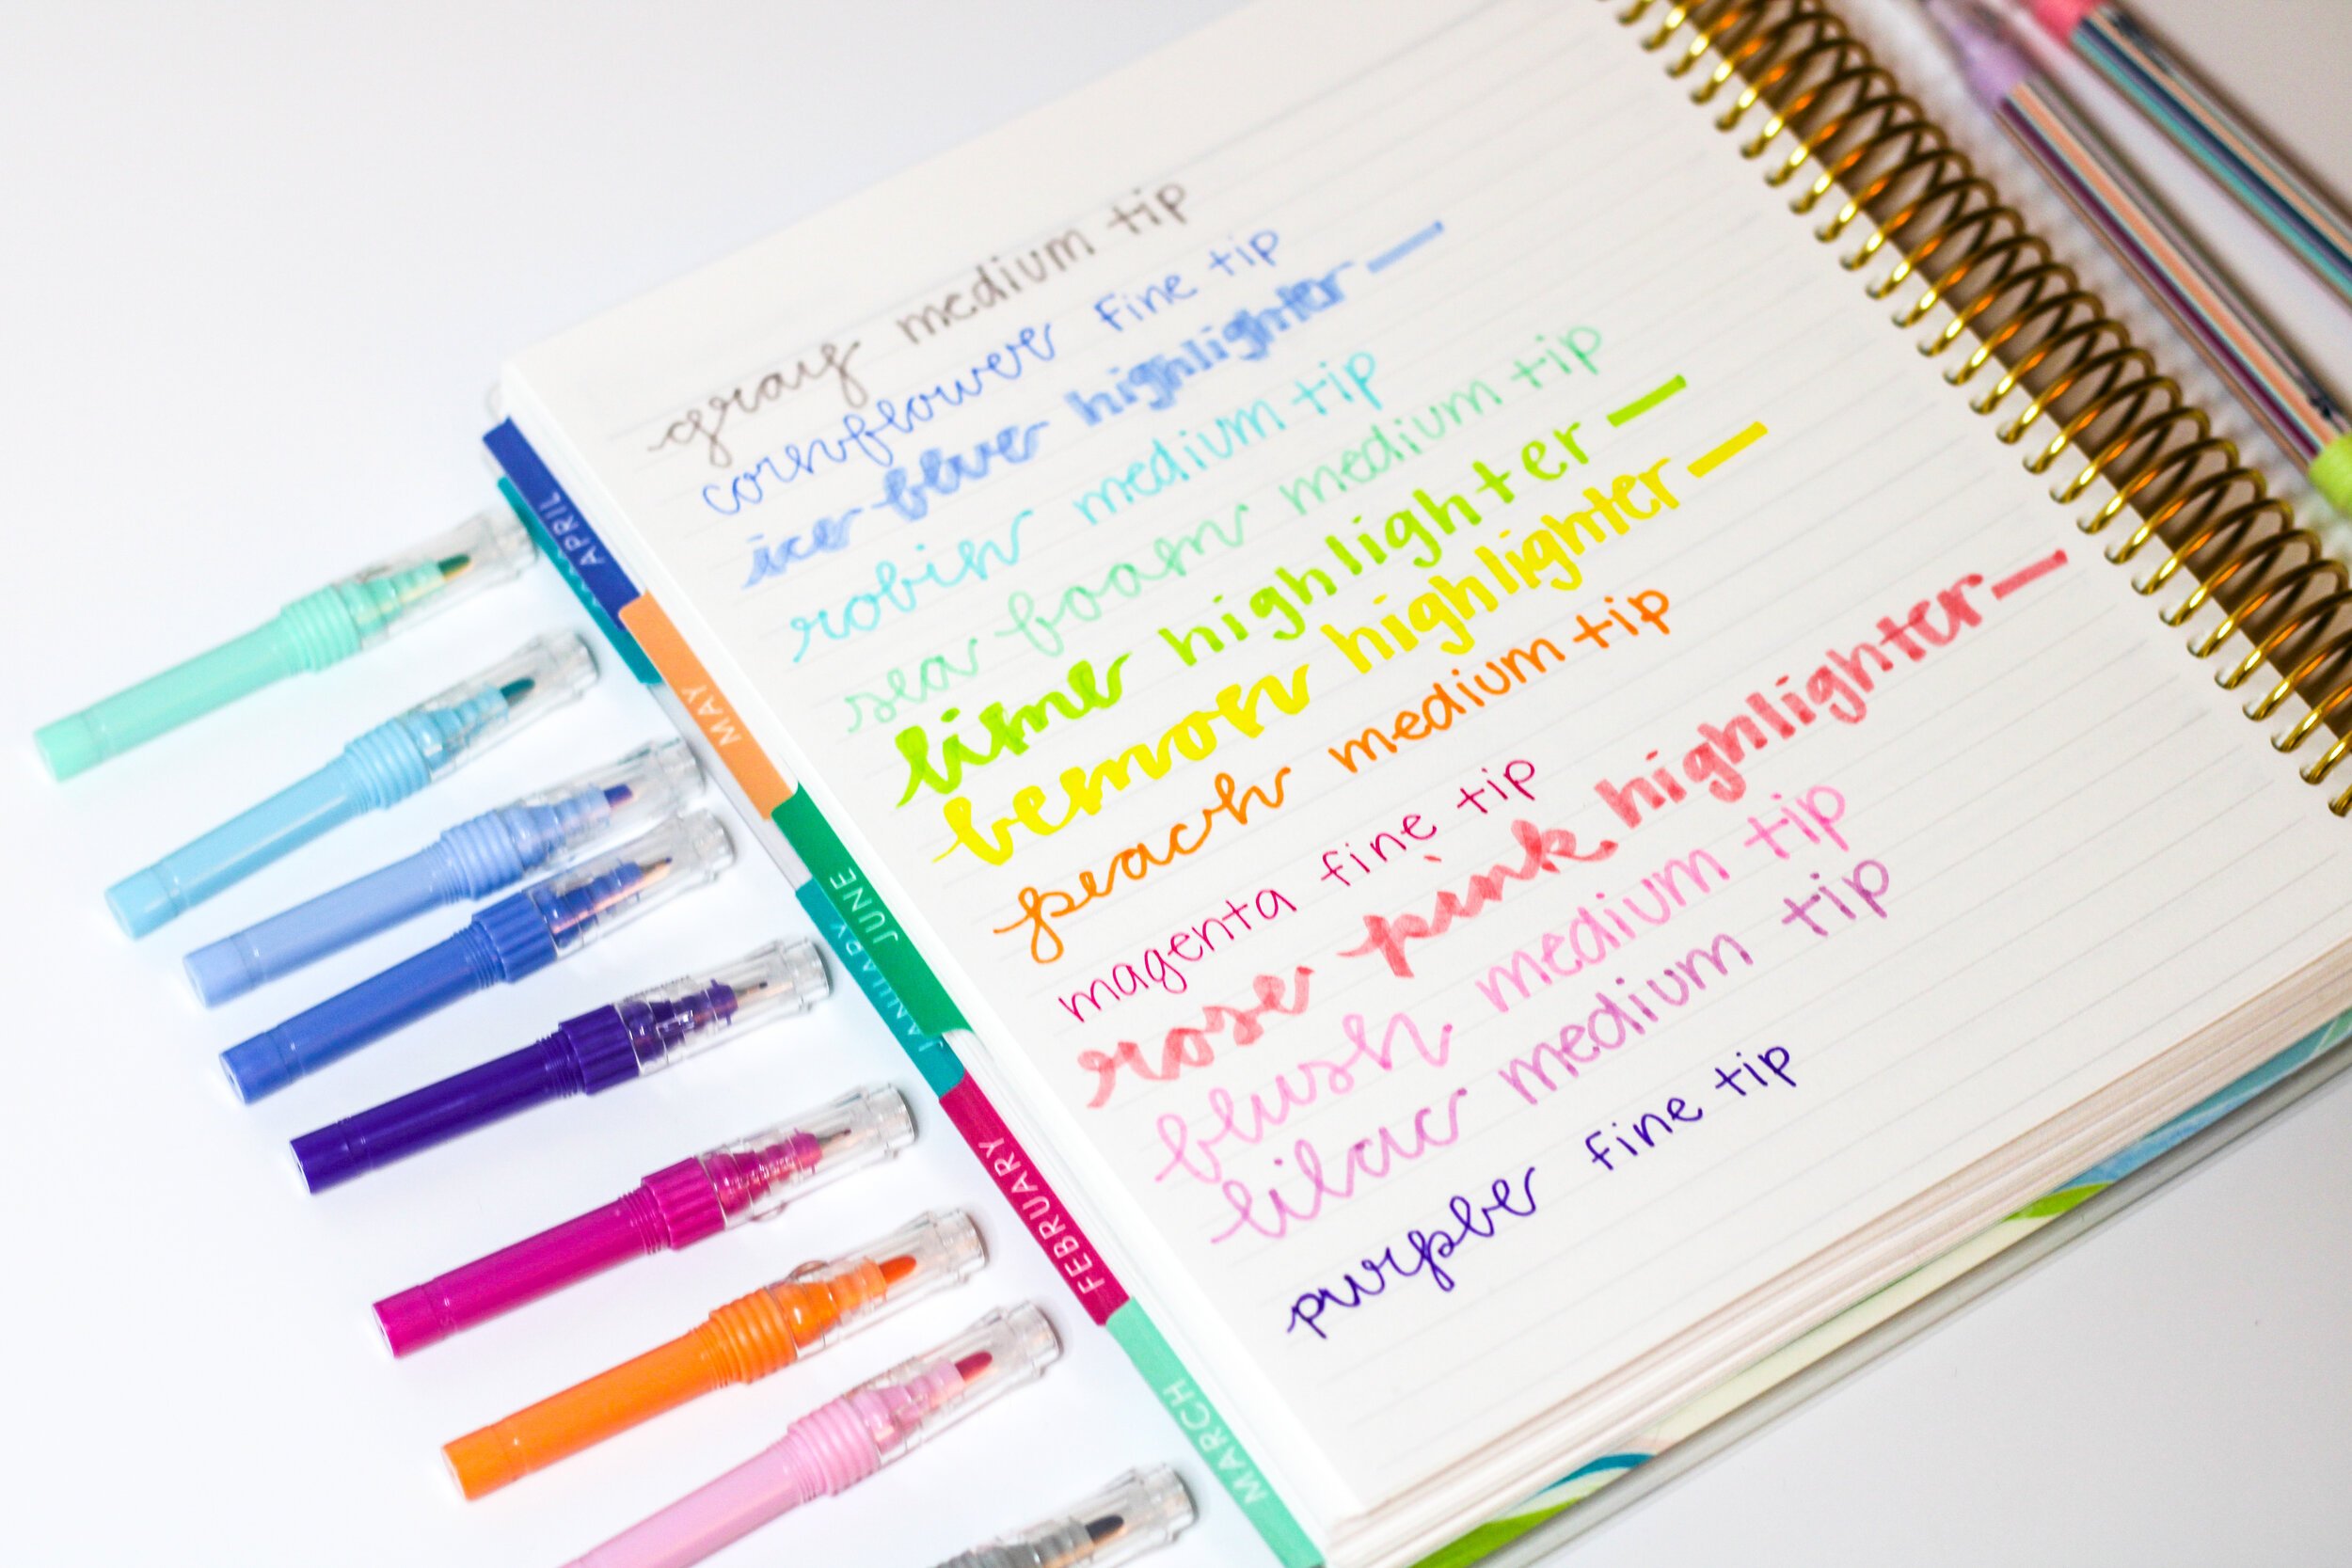 gray medium tip
cornflower fine tip
ice blue highlighter
robin medium tip
sea foam medium tip
lime highlighter
lemon highlighter
peach medium tip
magenta fine tip
rose pink highlighter
blush medium tip
lilac medium tip
purple fine tip
APRIL
MAY
JUNE
JANUARY
FEBRUARY
MARCH